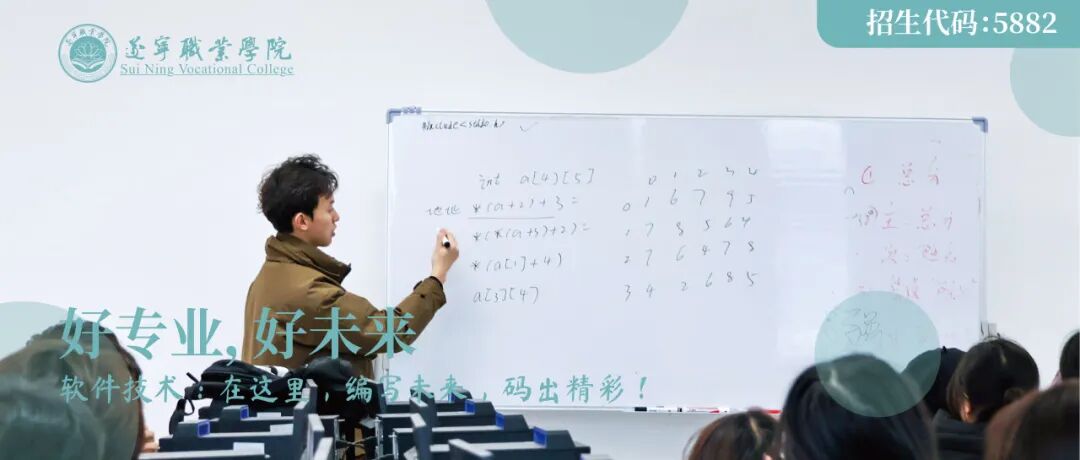 遂寧職業學院
Sui Ning Vocational College
招生代码:5882
#include<stdio.h>
int a[4][5]
0 1 2 3 4
地址 *(a+2)+3=
0 1 6 7 9 5
*(*(a+3)+2)=
1 7 8 5 6 4
*(a[1]+4)
2 7 6 4 7 8
a[3][4]
3 4 2 6 8 5
① 总分
主:总分
好专业,好未来
软件技术:在这里,编写未来,码出精彩!